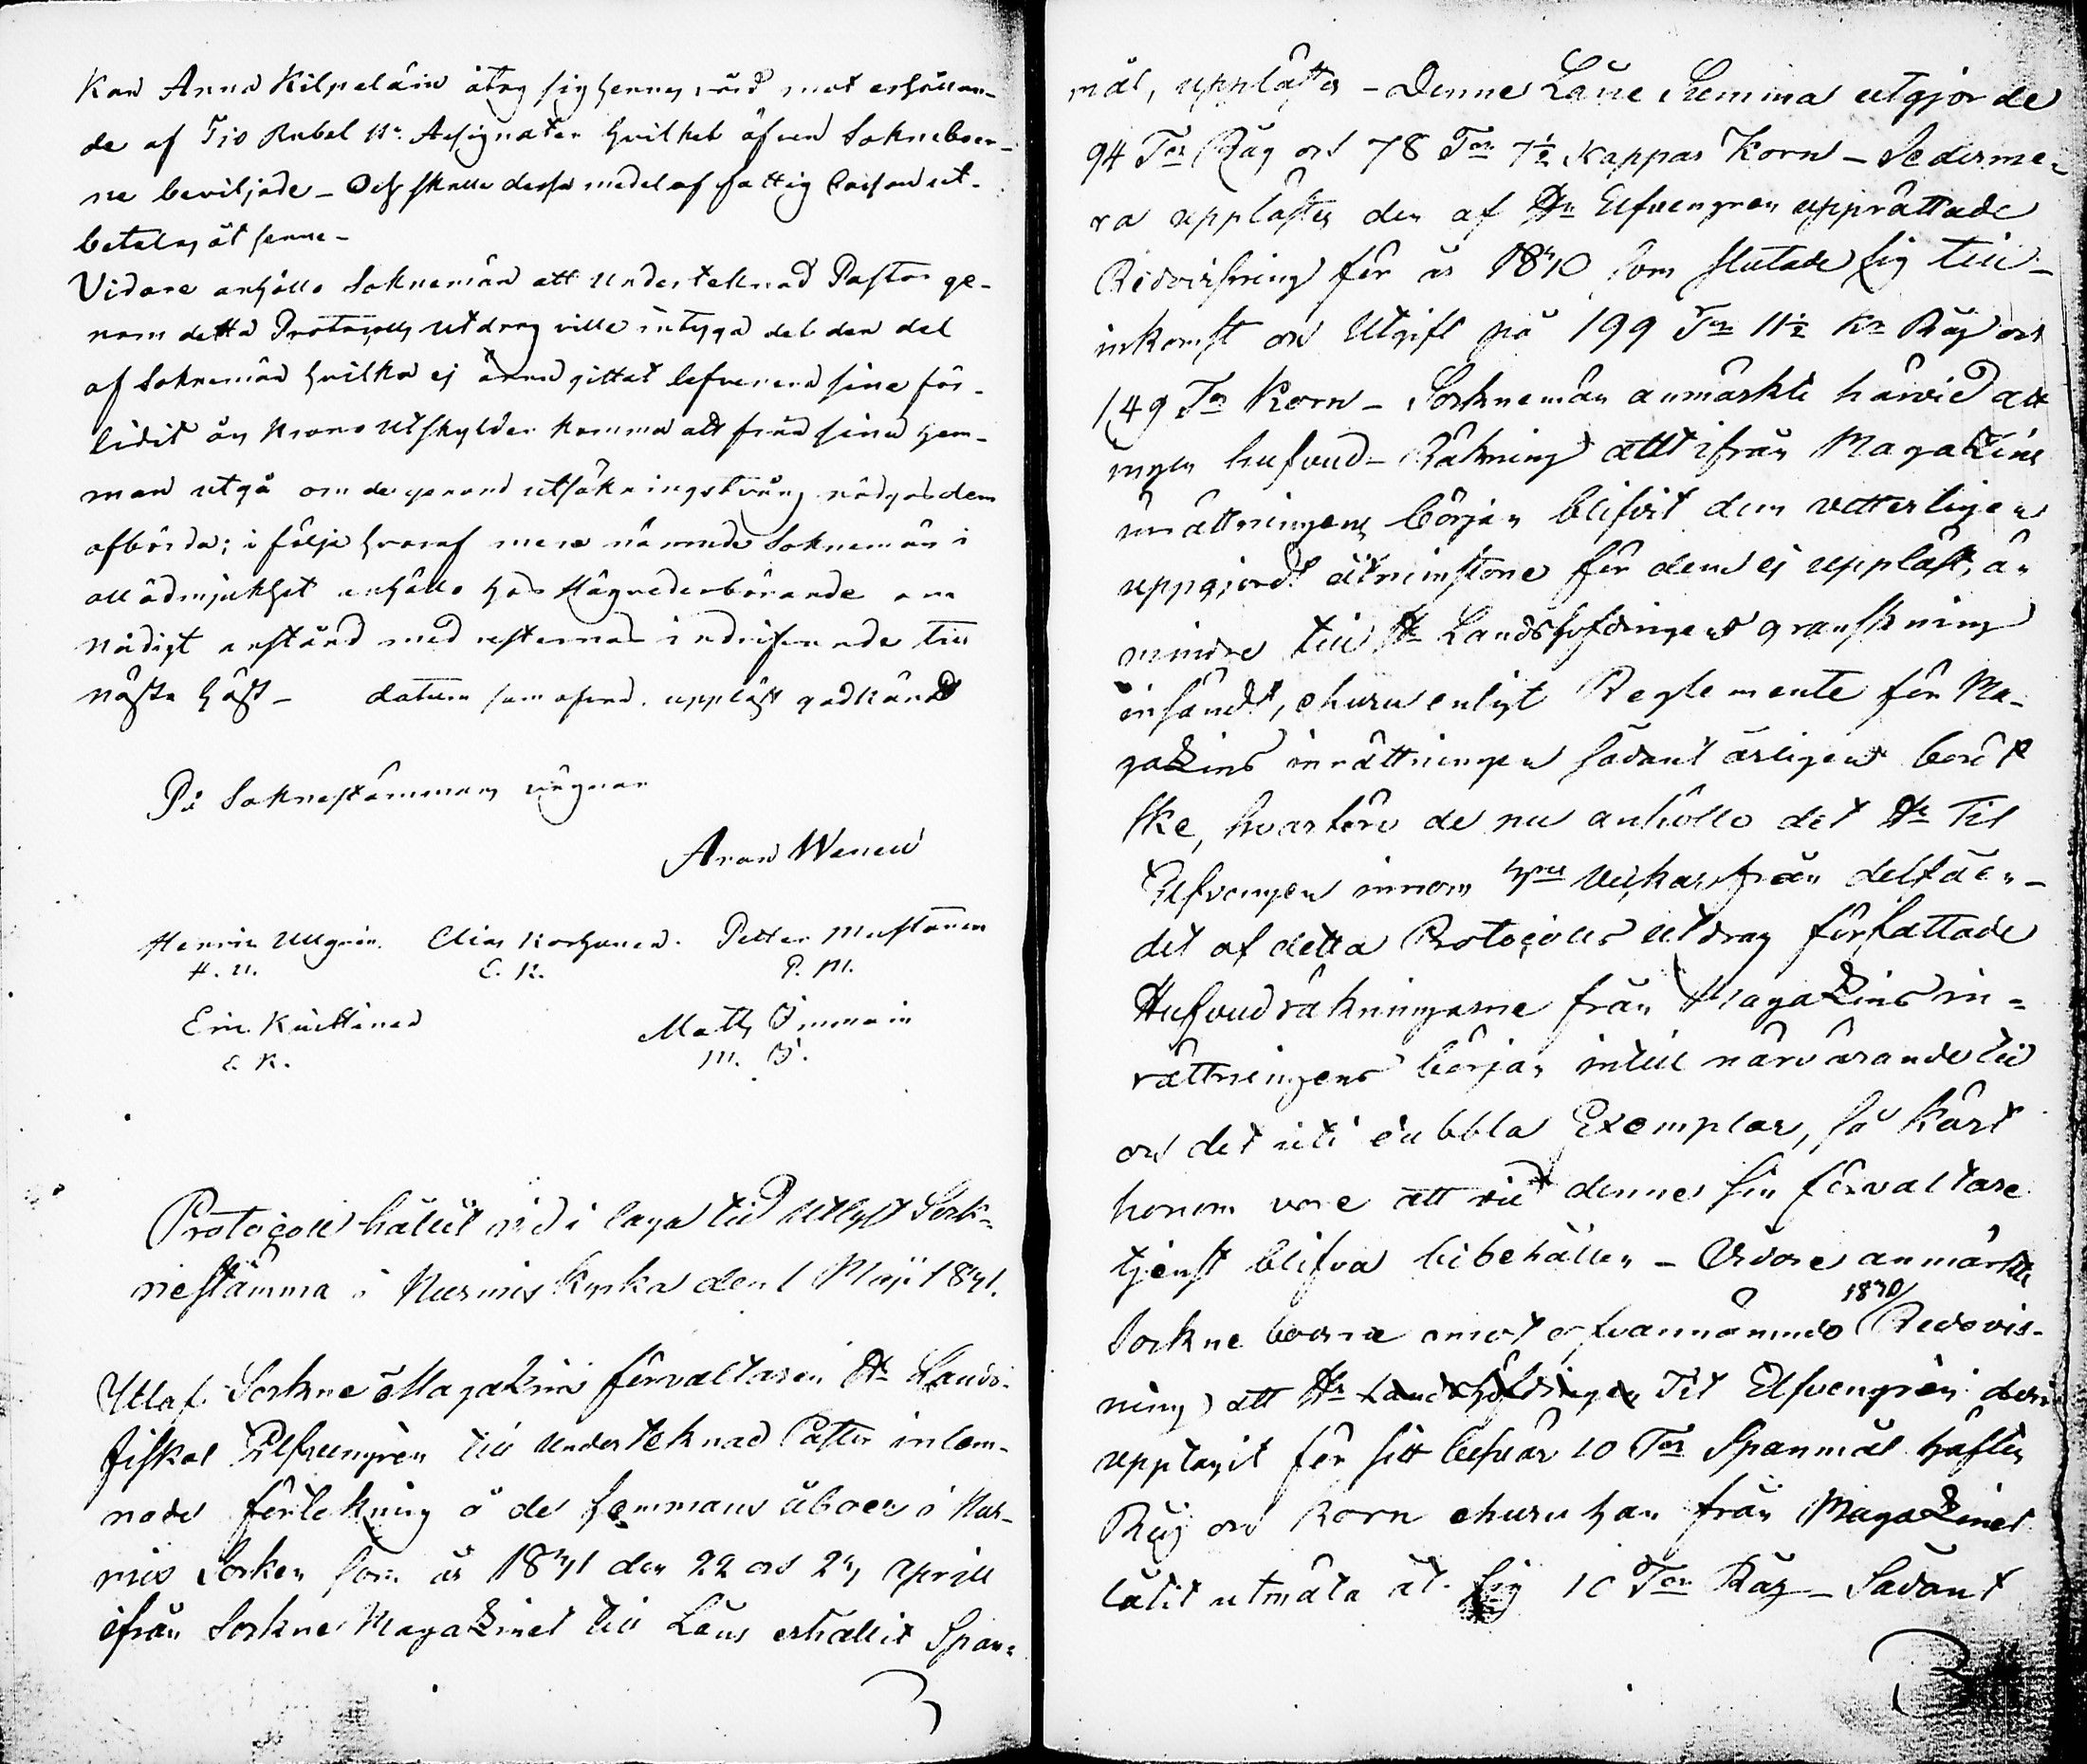 kan Anna Kilpeläin åtog sig hennes vård mot erhållan-
de af Tio Rubel Kr. Assignater hvilket äfven Sokneboer-
ne beviljade – Och skulle dessa medel af fattig Cassan ut-
betalas åt henne –
Vidare anhöllo Soknemän att Undertecknad Pastor ge-
nom detta Protocolls utdrag ville intyga det den del
af Soknemän hvilka ej ännu gittat lefverera sina för-
lidit års Krono Utskylder komma att från sina hem-
man utgå om de genom utsökningstvång nödgas dem
afbörda; i följe hvaraf mera nämnde Soknemän i
all ödmjukhet anhöllo hos Högvederbörande om
Nådigt anstånd med resternas indrifvande till
nästa höst – datum som ofvan. uppläst godkändt
På Soknestämmans vägnar
Aron Wenell
Henric Ullgrén. Elias Korhonen. Petter Mustonen
H. U. E. K. P. M.
Eric Kuittinen Matts Immoin
E. K. M. I.
Protocoll hållit vid i laga tid utlyst Sork-
nestämma i Nurmis Kyrka den 1 Maji 1841.
Utlaf Sorkne Magazins förvaltaren Hr Lands-
fiskal Elfvengrén till Undertecknad Pastor inlem-
nade förtekning å de hemmans åboer i Nur-
mis Sorken som år 1841 den 22 och 24 Aprill
ifrån Sorkne Magazinet till Låns erhållit Span-
mål, upplästes – Denne Låne Summa utgjorde
94 Tr Råg och 78 Tr 7½ Kappar Korn – Sederme-
ra upplästes den af Hr Elfvengren upprättade
Redovisning för år 1840 som slutade sig till
inkomst och Utgift på 199 Tr 11½ Kr Råg och
149 Tr Korn – Sorknemän anmärkte härvid att
ingen hufvud-Räkning allt ifrån Magazins
inrättningens början blifvit dem vetterligen
uppgjord åtminstone för dem ej uppläst, än
mindre till Hr Landshöfdingens granskning
insändt, ehuru enligt Reglemente för Ma-
gazins inrättningen sådant årligen bordt
ske, hvarföre de nu anhöllo det Hr Tit
Elfvengren innom veckor från delfåen-
det af detta Protocolls utdrag författade
Hufvudräkningarne från Magazins in-
rättningens början intill närvarande tid
och det uti dubbla Exemplar, så kärt
honom vore att vid denne sin förvaltare
tjenst blifva bibehållen – Vidare anmärkte
1840/
Sorkneboerne emot ofvannämnde Redovis-
ning att Hr Landshöfdingen Tit Elfvengrén
upptagit för sitt besvär 10 Tr Spanmål hälften
Råg och Korn ehuru han från Magazinet
låtit utmäta åt sig 10 Tr Råg – Sådant